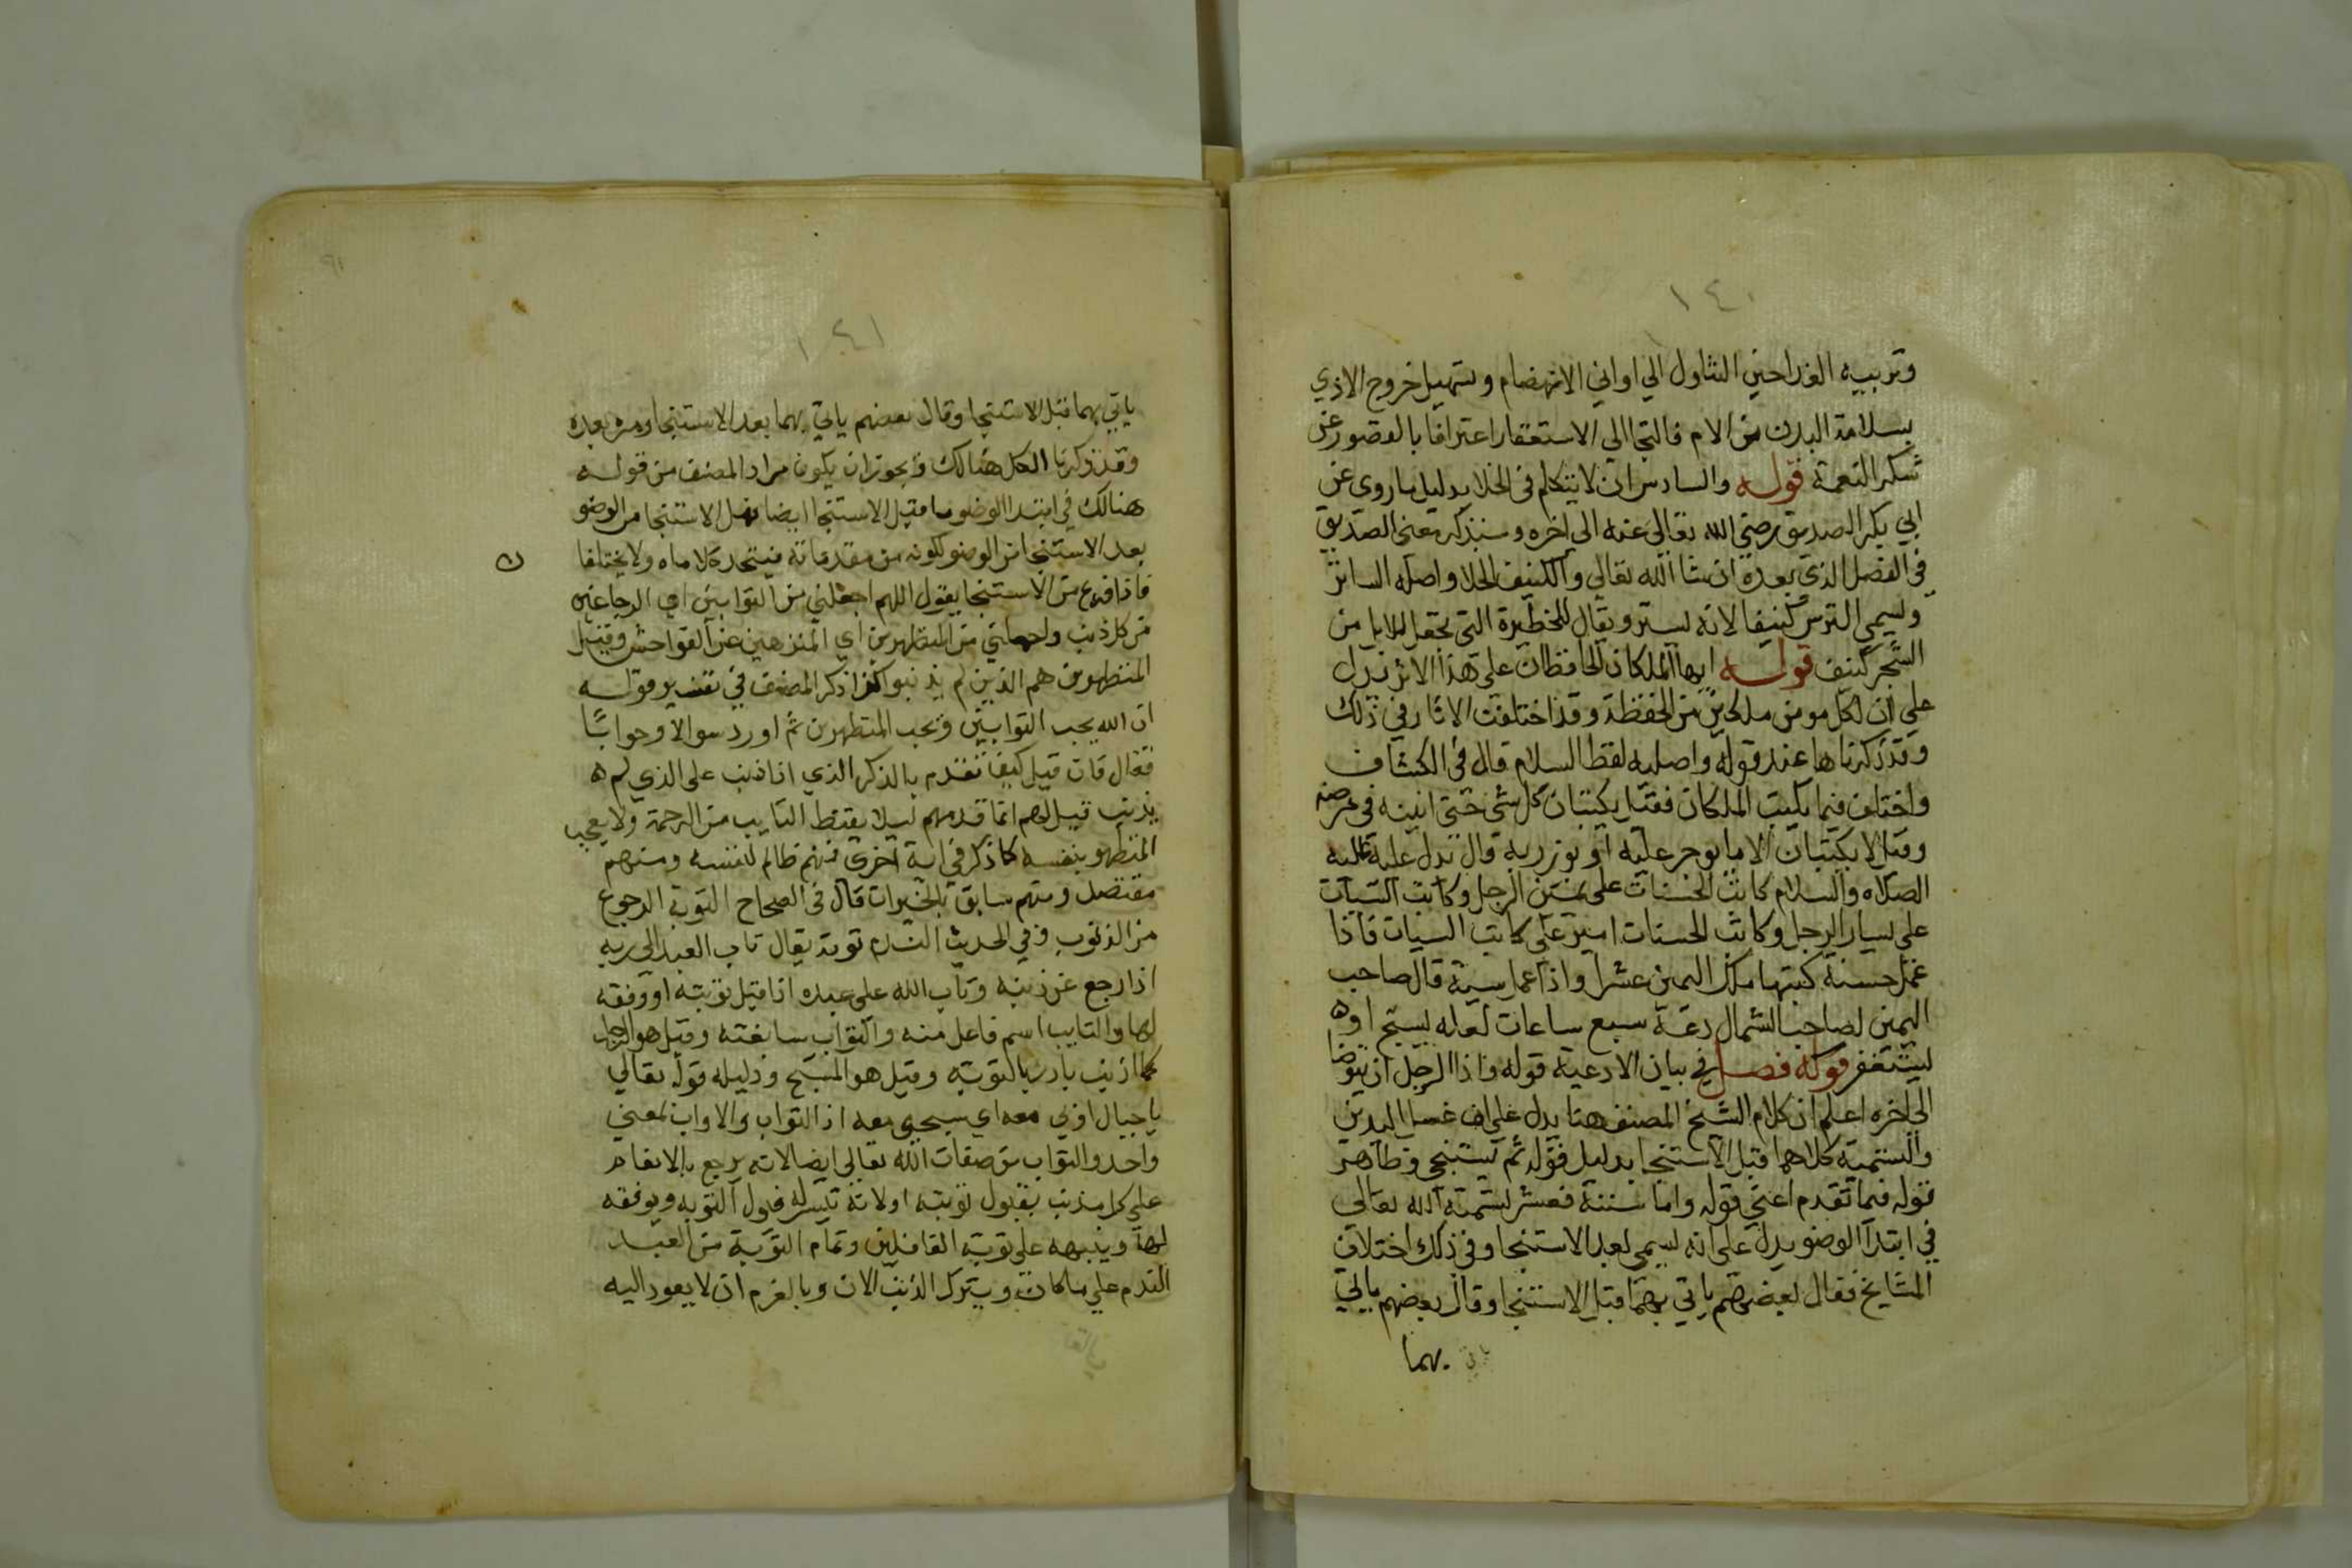 ١٤٠
وتربيه الغدا حين التناول الي اواني الانهضام وتسهيل خروج الاذي
بسلامة البدن من الام فالتجا الي الاستغفار اعترافا بالقصور عن
شكر النعمة قوله والسادس ان لا يتكلم في الخلا بدليل ما روي عن
ابي بكر الصديق رضي الله تعالي عنه الي اخره وسنذكر معني الصديق
في الفصل الذي بعده ان شا الله تعالي والكنيف الخلا واصله الساتر
ويسمي الترس كنيفا لانه يستر ويقال للحظيرة التي تجعل للابل من
الشجر كنيف قوله ايها الملكان الحافظان علي هذا الاثر يدل
علي ان لكل مومن ملكين من الحفظة وقد اختلفت الاثار في ذلك
وقد ذكرناها عند قوله واصليه لفظ السلام قال في الكشاف
واختلف فيما يكتب الملكان فقيل يكتبان كل شي حتي انينه في مرضه
وقيل لا يكتبان الا ما يوجر عليه او يوزر به قال يدل عليه عليه
الصلاه والسلام كاتب الحسنات علي يمين الرجل وكاتب السيات
علي يسار الرجل وكاتب الحسنات امير علي كاتب السيات فاذا
عمل حسنة كتبها ملك اليمين عشرا واذا عمل سيية قال صاحب
اليمين لصاحب الشمال دعه سبع ساعات لعله يسبح او ه
ليستغفر قوله فصل في بيان الادعية قوله فاذا الرجل ان يتوضا
الي اخره اعلم ان كلام الشيخ المصنف هنا يدل علي ان غسل اليدين
والتسمية كلاهما قبل الاستنجا بدليل قوله ثم يستنجي وظاهر
قوله فيما تقدم اعني قوله واما سننه فعشر تسمية الله تعالي
في ابتدا الوضو يدل علي انه يسمي بعد الاستنجا وفي ذلك اختلاف
المشايخ فقال بعضهم ياتي بهما قبل الاستنجا وقال بعضهم ياتي
ياتي بهما
٩١
١٤١
ياتي بهما قبل الاستنجا وقال بعضهم ياتي بهما بعد الاستنجا ومره بعده
وقد ذكرنا الكل هنالك ويجوز ان يكون مراد المصنف من قوله
هنالك في ابتدا الوضو ما قبل الاستنجا ايضا الاستنجا من الوضو
بعد الاستنجا من الوضو لكونه من مقدماته فيتحد كلاماه ولا يختلفا
ن
فاذا فرغ من الاستنجا يقول اللهم اجعلني من التوابين اي الرجاعين
من كل ذنب واجعلني من المتطهرين اي المتنزهين عن الفواحش وقيل
المتطهرون هم الذين لم يذنبوا كذا ذكر المصنف في تفسير قوله
ان الله يحب التوابين ويحب المتطهرين ثم اورد سوالا وجوابا
فقال فان قيل كيف تقدم بالذكر الذي اذا ذنب علي الذي لم ه
يذنب قيل لهم انما قدمهم ليلا يقنط التايب من الرحمة ولا يعجب
المتطهر بنفسه كما ذكر في اية اخري فمنهم ظالم لنفسه ومنهم
مقتصد ومنهم سابق بالخيرات قال في الصحاح التوبة الرجوع
من الذنوب وفي الحديث الندم توبة يقال تاب العبد الي ربه
اذا رجع عن ذنبه وتاب الله علي عبده اذا قبل توبته او وفقه
لها والتايب اسم فاعل منه والتواب مبالغته وقيل هو الرجل
كلما اذنب بادر بالتوبة وقيل هو المسبح ودليله قوله تعالي
يا جبال اوبي معه اي سبحي معه اذ التواب والاواب بمعني
واحد والتواب من صفات الله تعالي ايضا لانه يرجع بالانعام
علي كل مذنب بقبول توبته او لانه تيسر له قبول التوبه ويوفقه
لها وينبهه علي توبة الغافلين وتمام التوبة من العبد
الندم علي ما كان ويترك الذنب الان وبالعزم ان لا يعود اليه